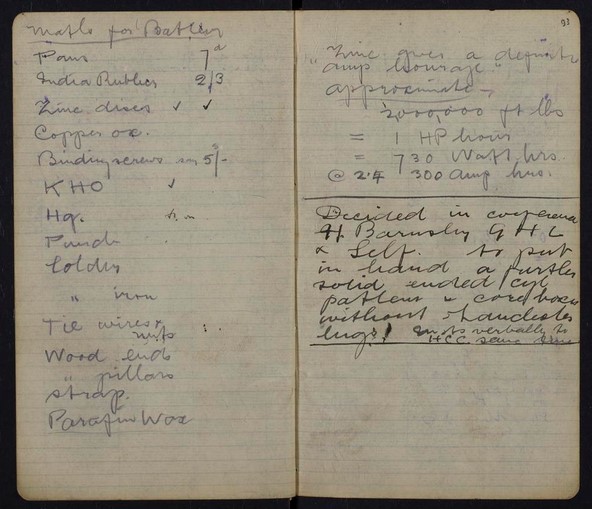 Matls for Battery
Pans 7d
India Rubbers 2/3
Zinc discs ✓ ✓
Copper ox.
Binding screws 5/-
KHO ✓
Hg.
Solder
" iron
Tie wires &
nuts
Wood ends
" pillars
strap.
Parafin Wax
93
"Zinc gives a definite
amp hourage"
approximate -
2000,000 ft lbs
= 1 HP hour
= 730 Watt hrs.
@ 2.4 300 amp hrs.
Decided in conference
H Barnsley G H L
& Self. to put
in hand a further
solid ended cyl
pattern & core boxes
without
lugs! verbally to
HCC same time